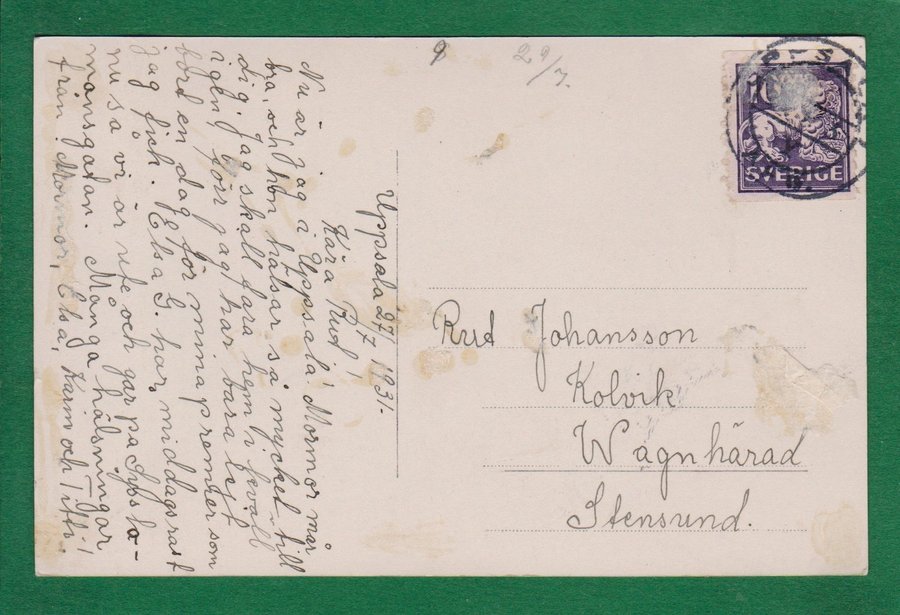 Uppsala 27/7 1931.
Kära Rud!
Nu är jag i Uppsala! Mormor mår
bra, och hon hälsar så mycket till
dig. Jag skall fara hem i kväll
igen, förr jag har bara lejt
bord en dag för mina pre som
jag fick. Elsa G. har middagsrast
nu så vi är ute och går på Syssla-
mansgadan. Många hälsningar
från: Mormor, Elsa, Karin och Titti!
9 29/7.
10
SVERIGE
UPPSALA
Rud Johansson
Kolvik
Wagnhärad
Stensund.